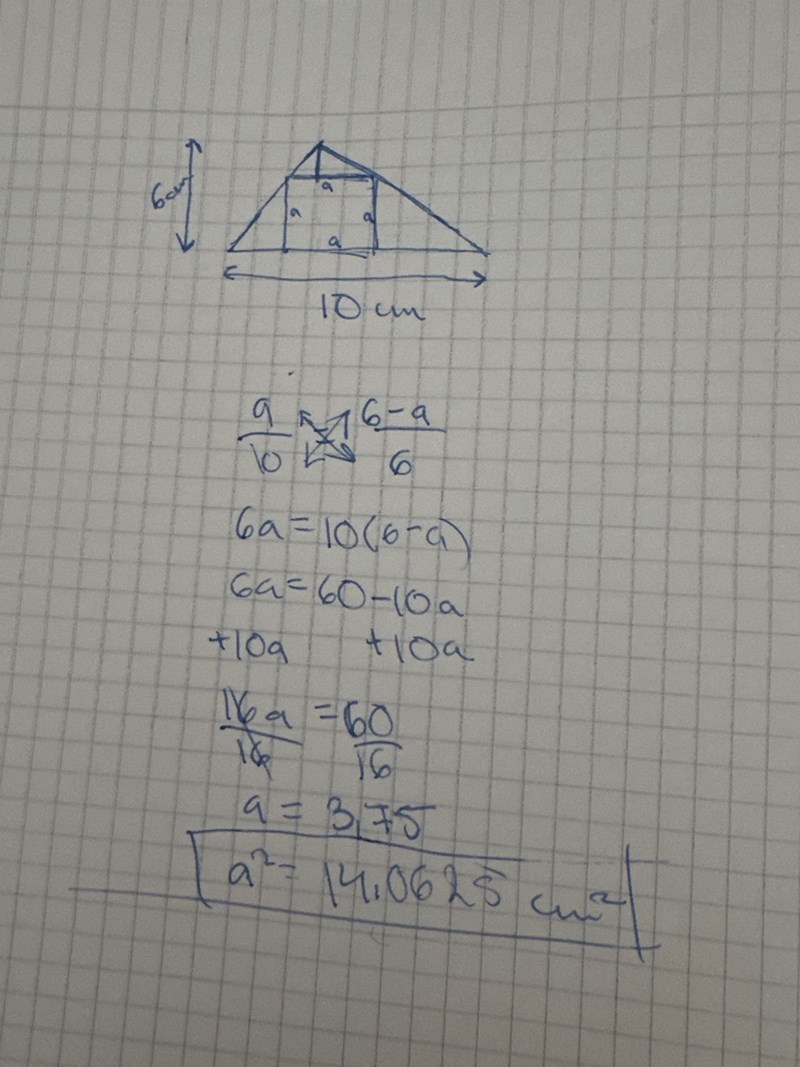 6cm
a
a a
a
10 cm
a/10 6-a/6
6a=10(6-a)
6a=60-10a
+10a +10a
16a/16 =60/16
a = 3,75
a²= 14,0625 cm²